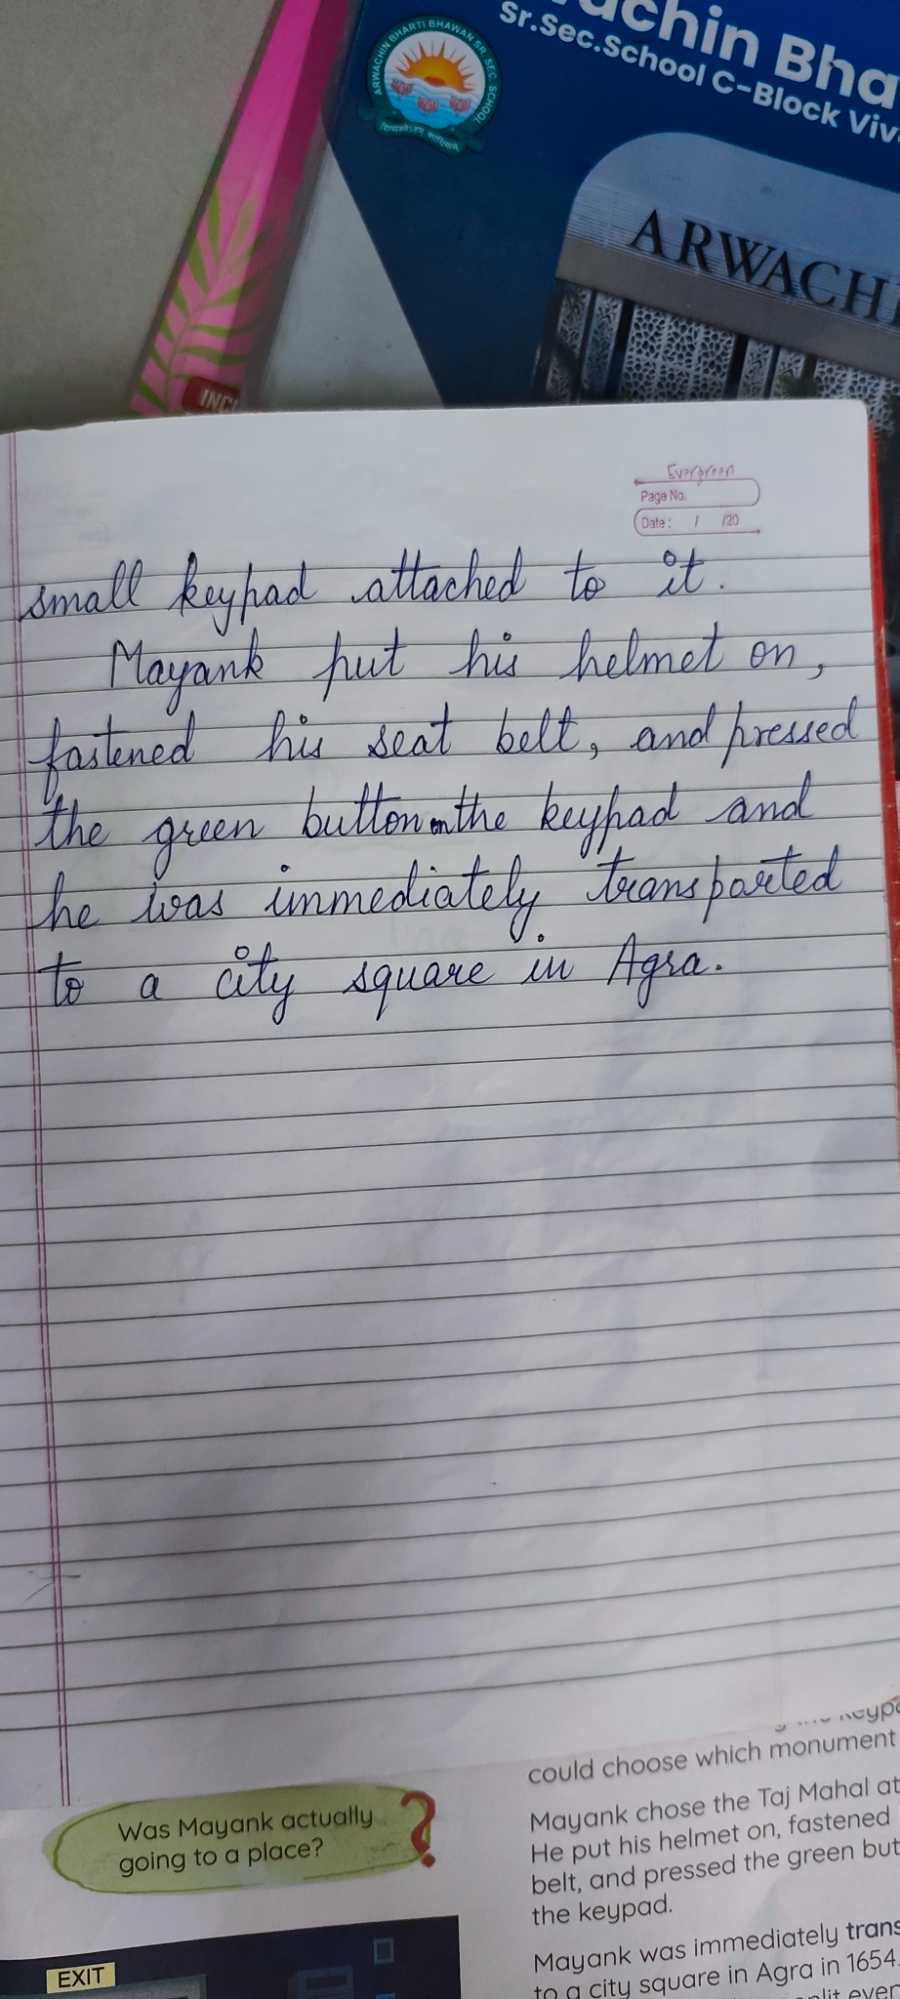 ARWACHIN BHARTI BHAWAN SR. SEC. SCHOOL
achin Bha
Sr.Sec.School C-Block Viv
ARWACHI
Evergreen
Page No.
Date: / /20
small keypad attached to it.
Mayank put his helmet on,
fastened his seat belt, and pressed
the green button on the keypad and
he was immediately transported
to a city square in Agra.
could choose which monument
Was Mayank actually
going to a place?
?
Mayank chose the Taj Mahal at
He put his helmet on, fastened
belt, and pressed the green but
the keypad.
Mayank was immediately trans
to a city square in Agra in 1654.
EXIT